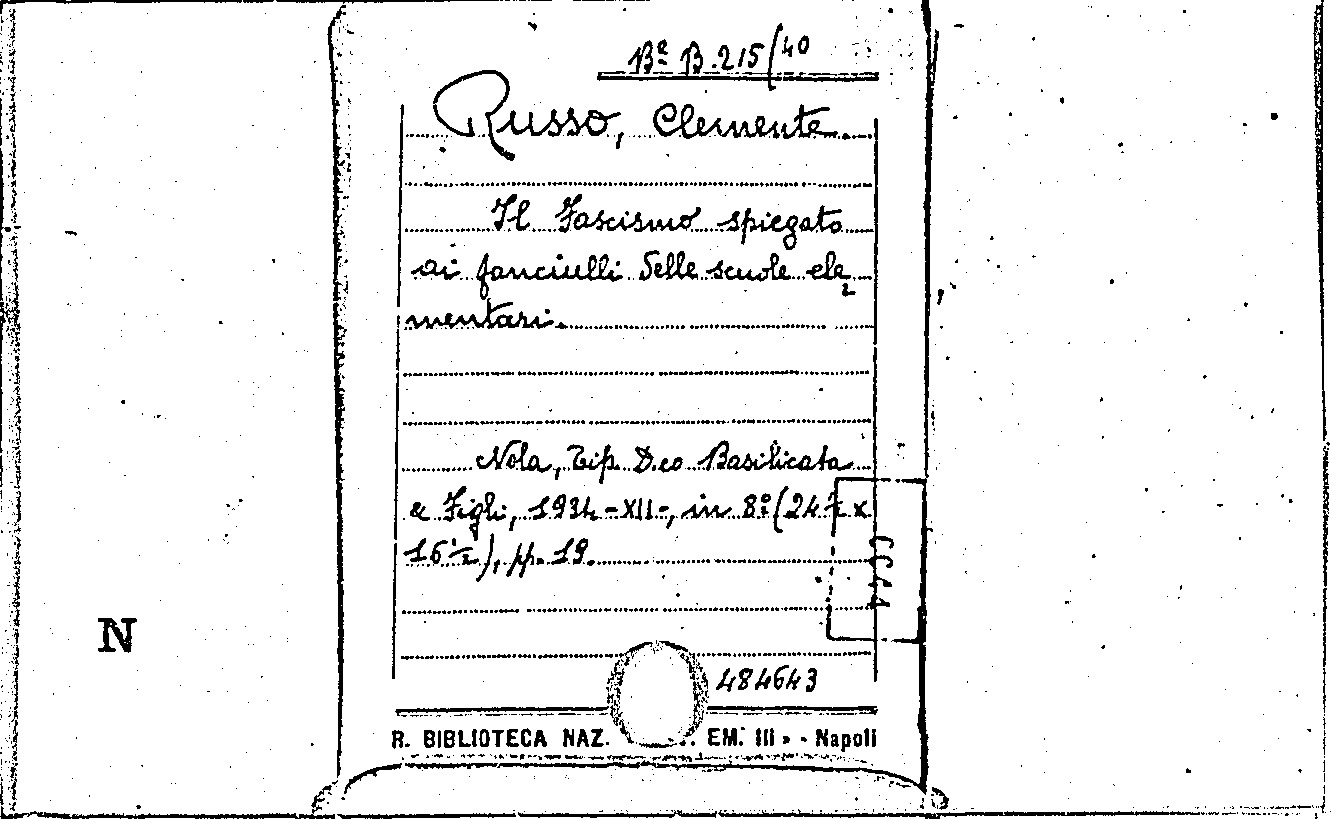 Bª B.215(40
Russo, Clemente.
Il Fascismo spiegato
ai fanciulli delle scuole ele
mentari.
Nola, Tip. D.co Basilicata
& Figli, 1934-XII-, in 8º (24½ x
16½), pp. 19.
N
484643
R. BIBLIOTECA NAZ. EM. III » - Napoli